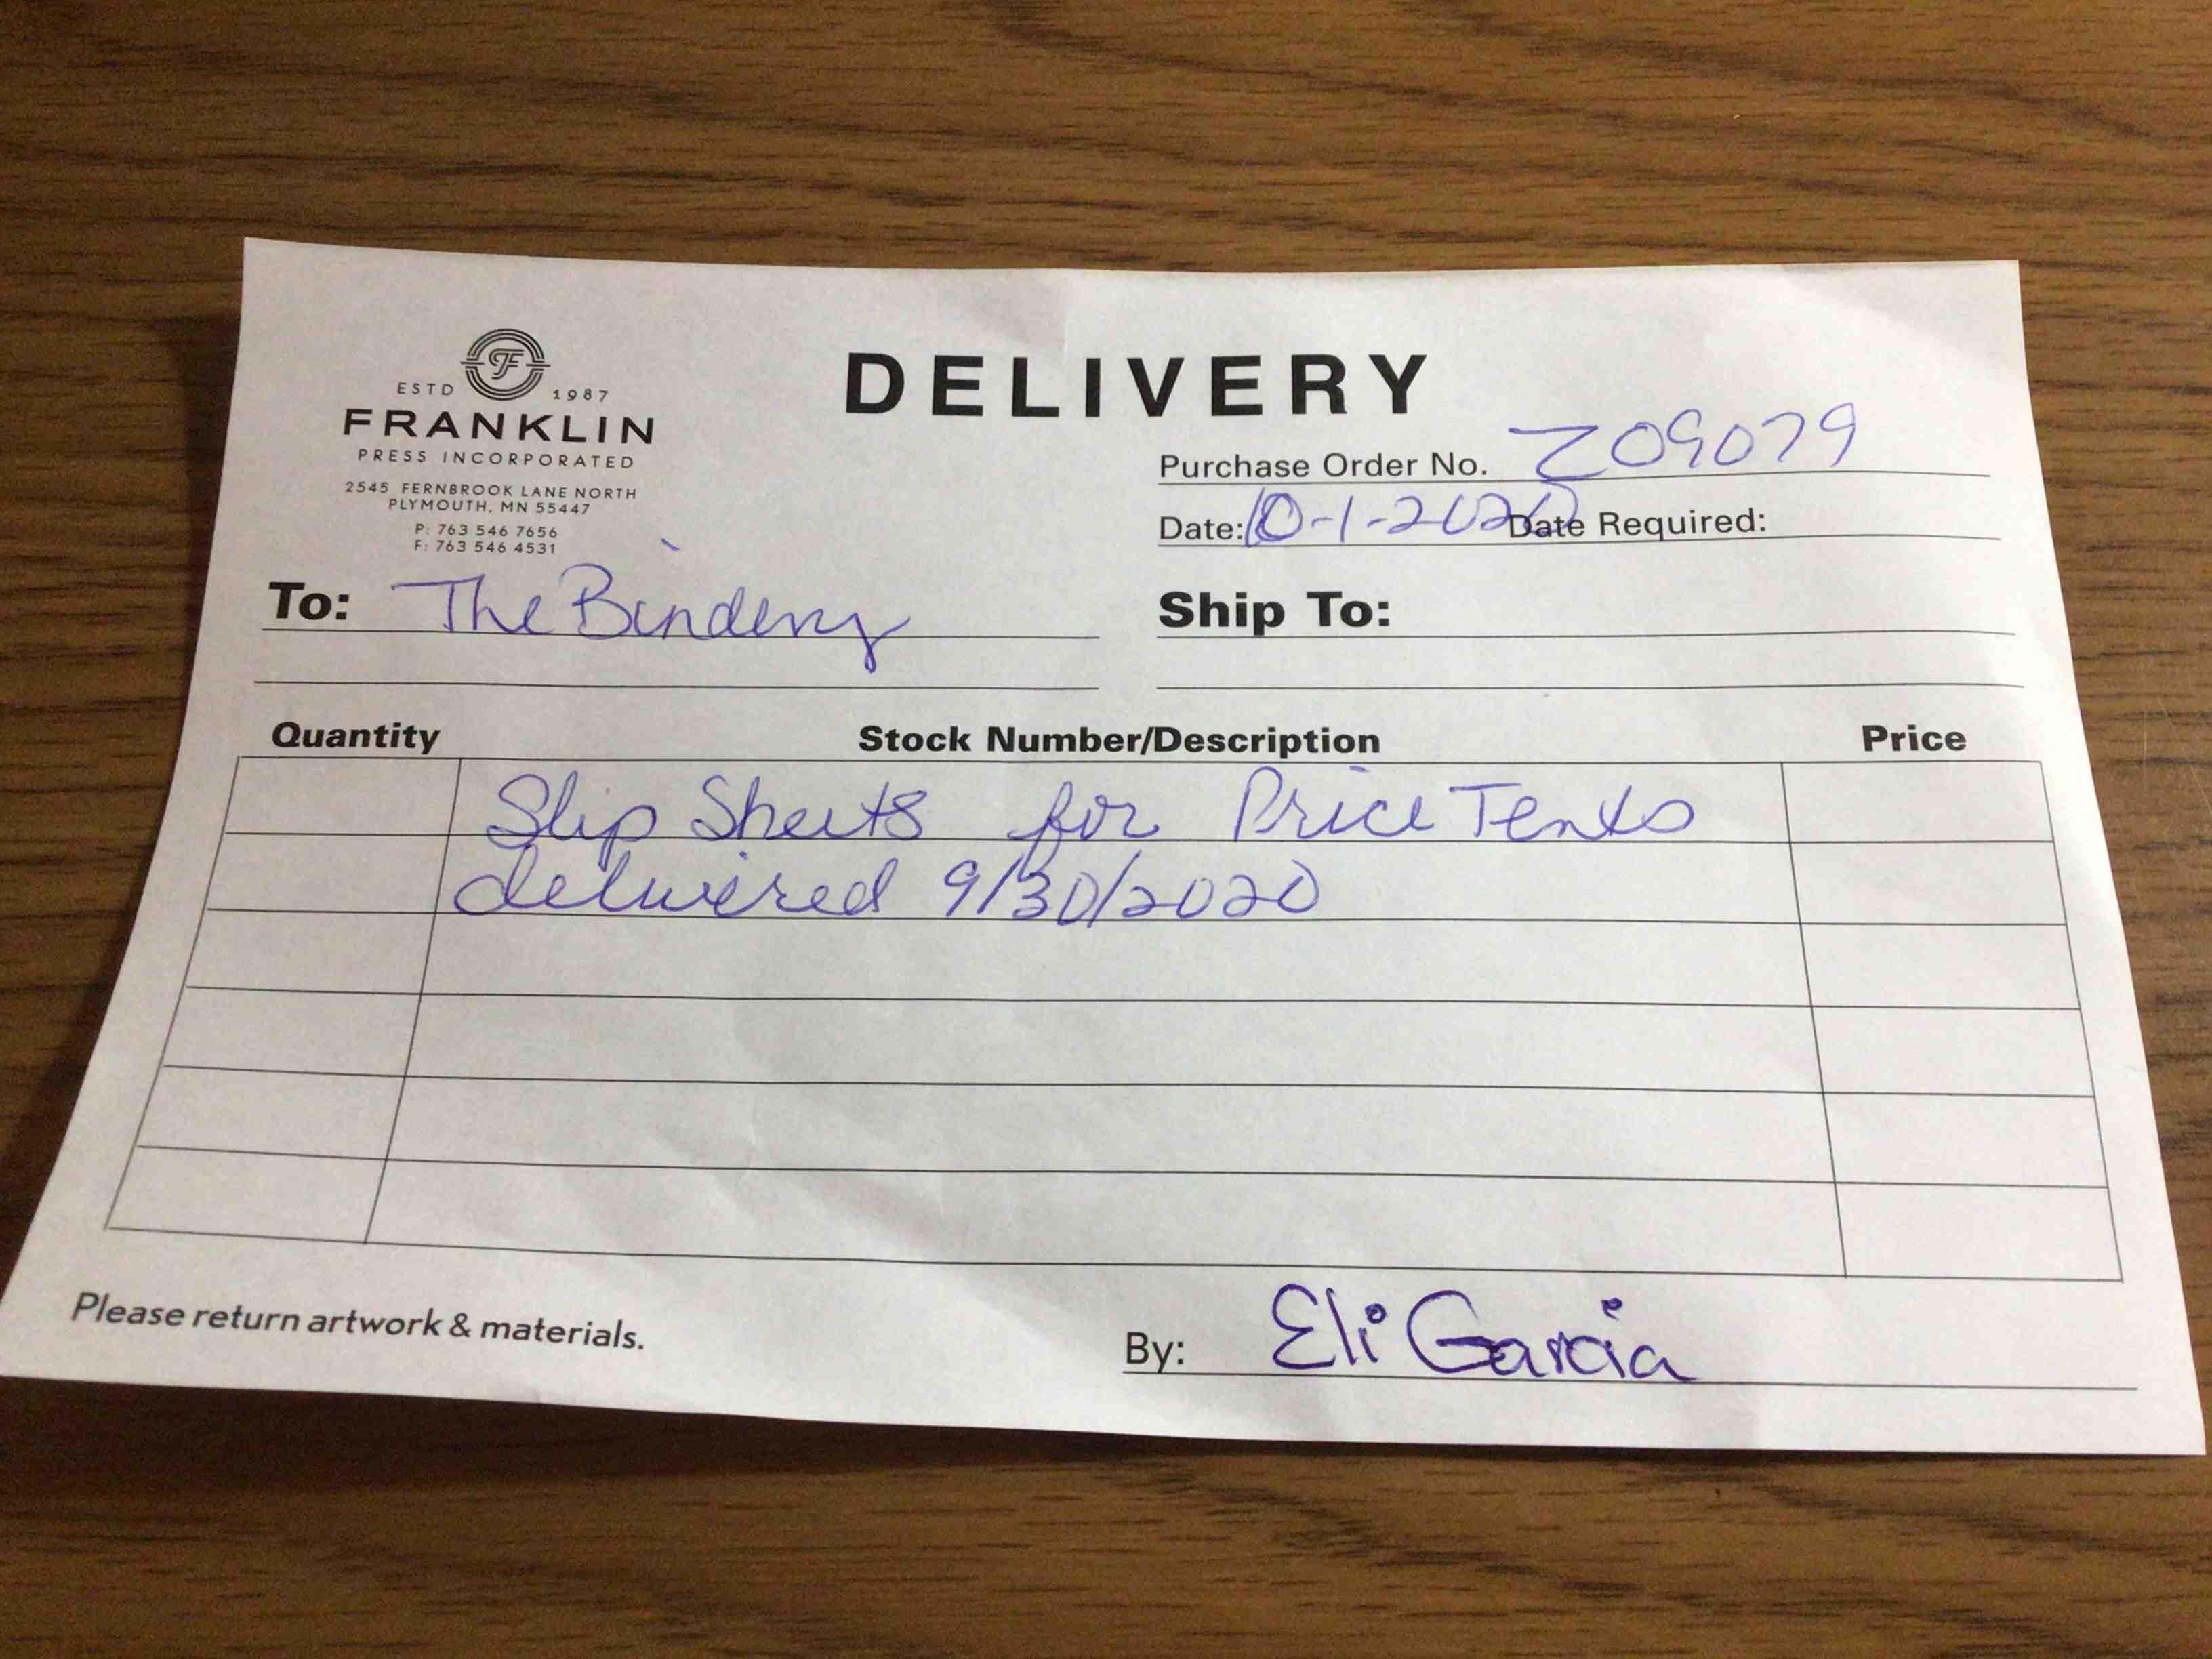 ESTD 1987
FRANKLIN
PRESS INCORPORATED
2545 FERNBROOK LANE NORTH
PLYMOUTH, MN 55447
P: 763 546 7656
F: 763 546 4531
DELIVERY
Purchase Order No. Z09079
Date: 10-1-2020 Date Required:
To: The Bindery
Ship To:
Quantity Stock Number/Description Price
Slip Sheets for Price Tents
delivered 9/30/2020
Please return artwork & materials.
By: Eli Garcia